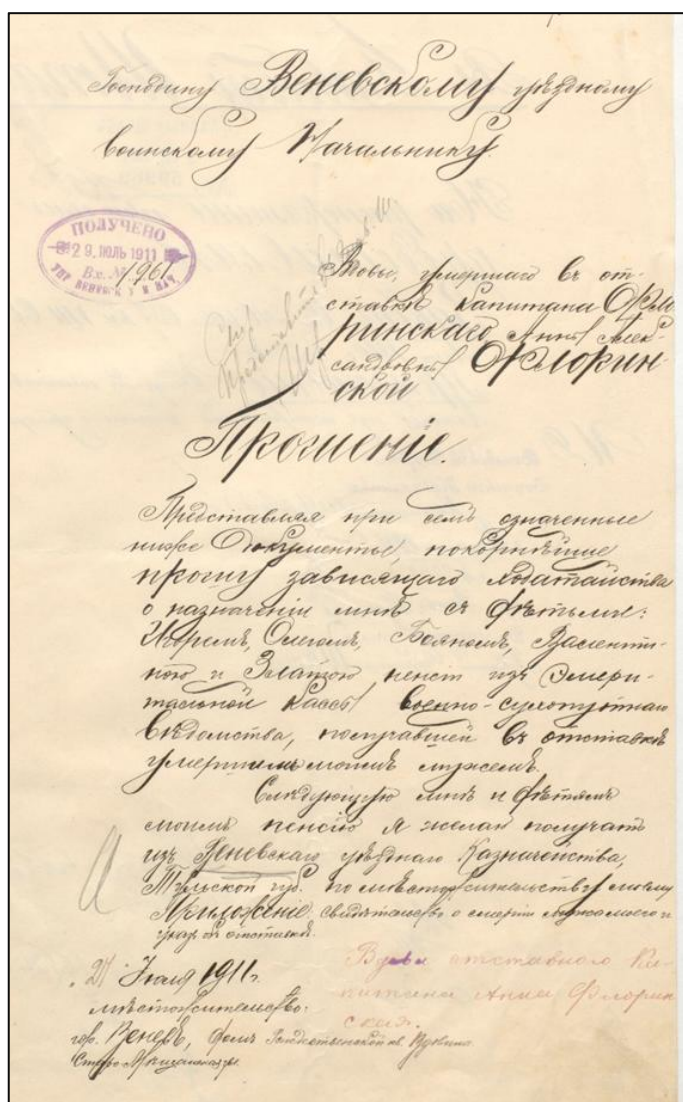 Господину Веневскому уѣздному
воинскому Начальнику.
ПОЛУЧЕНО
29. ИЮЛЬ 1911
Вх. № 1961
УПР. ВЕНЕВСК. У. В. НАЧ.
Вдовы, умершаго въ от-
ставкѣ капитана Фло-
ринскаго Анны Алек-
сандровны Флорин-
ской
Прошеніе.
Представляя при семъ означенные
ниже документы, покорнѣйше
прошу зависящаго ходатайства
о назначеніи мнѣ съ дѣтьми:
Игоремъ, Олегомъ, Бояномъ, Валенти-
ною и Златою пенсіи изъ Эмери-
тальной кассы военно-сухопутнаго
вѣдомства, получавшей въ отставкѣ
умершимъ моимъ мужемъ.
Слѣдующую мнѣ и дѣтямъ
моимъ пенсію я желаю получать
изъ Веневскаго уѣзднаго Казначейства,
Тульской губ. по мѣстожительству моему
Приложеніе: свидѣтельство о смерти мужа моего и
указъ объ отставкѣ.
Вдова отставного Ка-
питана Анна Флорин
ская.
Июля 1911 г.
мѣстожительство:
гор. Веневъ, домъ